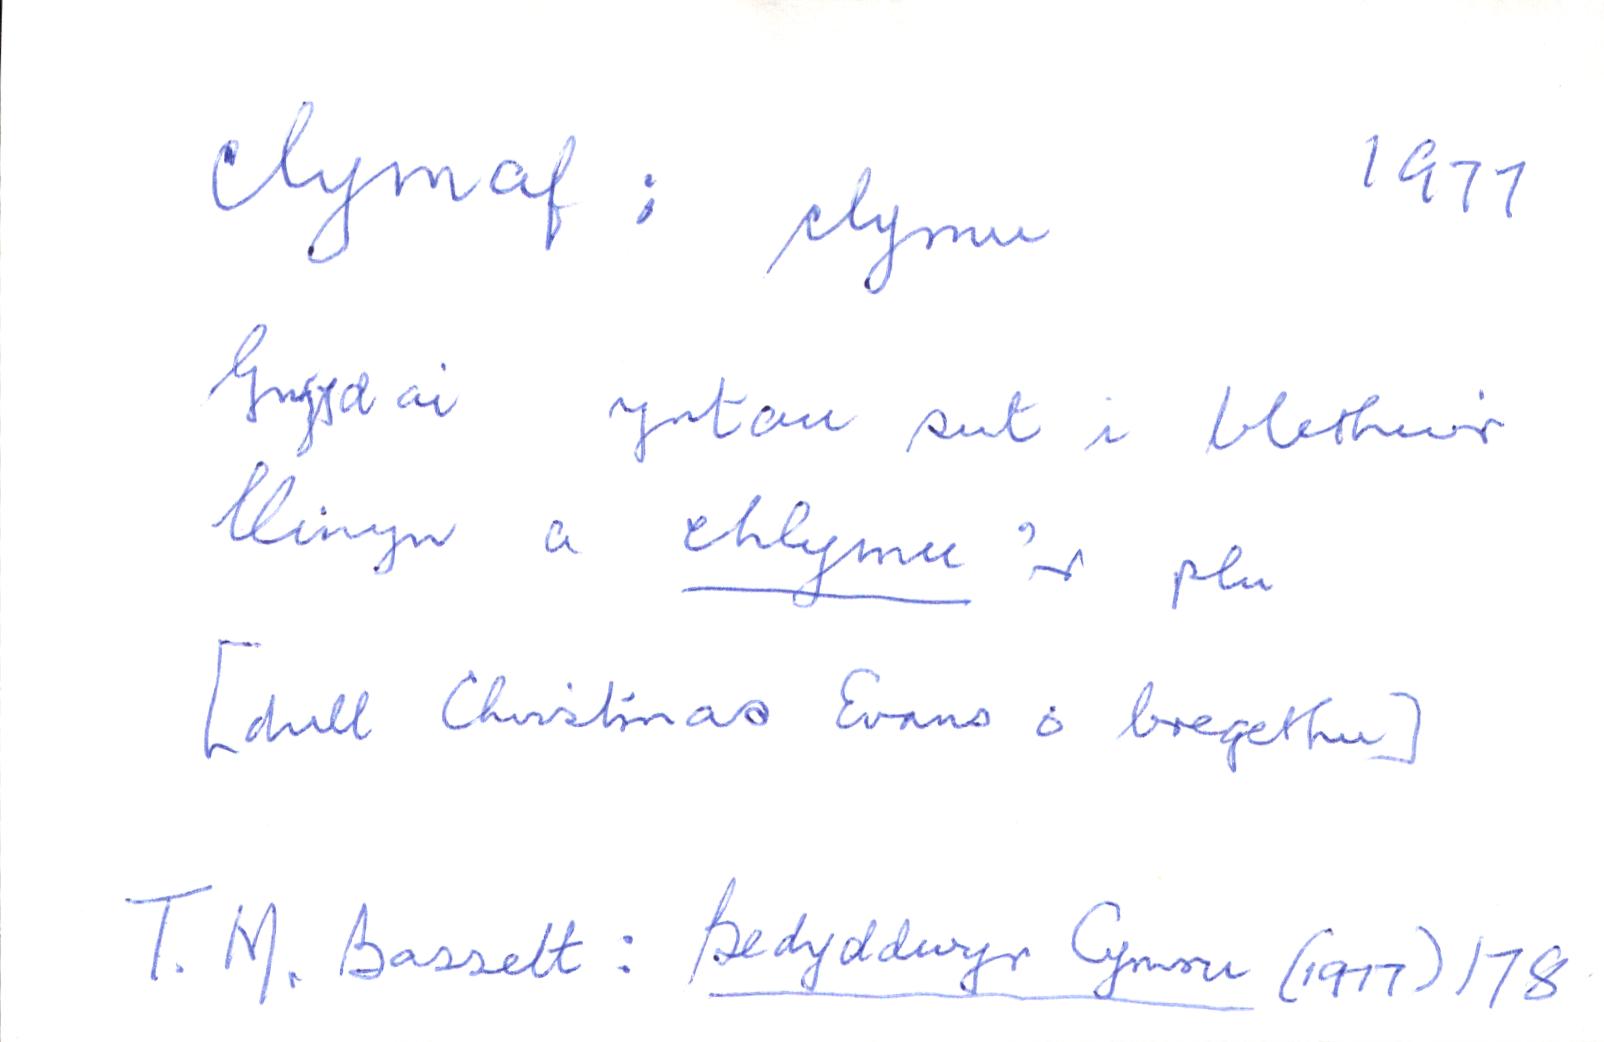 clymaf ; clymu 1977
Gwyddai yntau sut i blethu'r
llinyn a chlymu 'r plu
[dull Christmas Evans o bregethu]
T. M. Bassett : Bedyddwyr Cymru (1977) 178